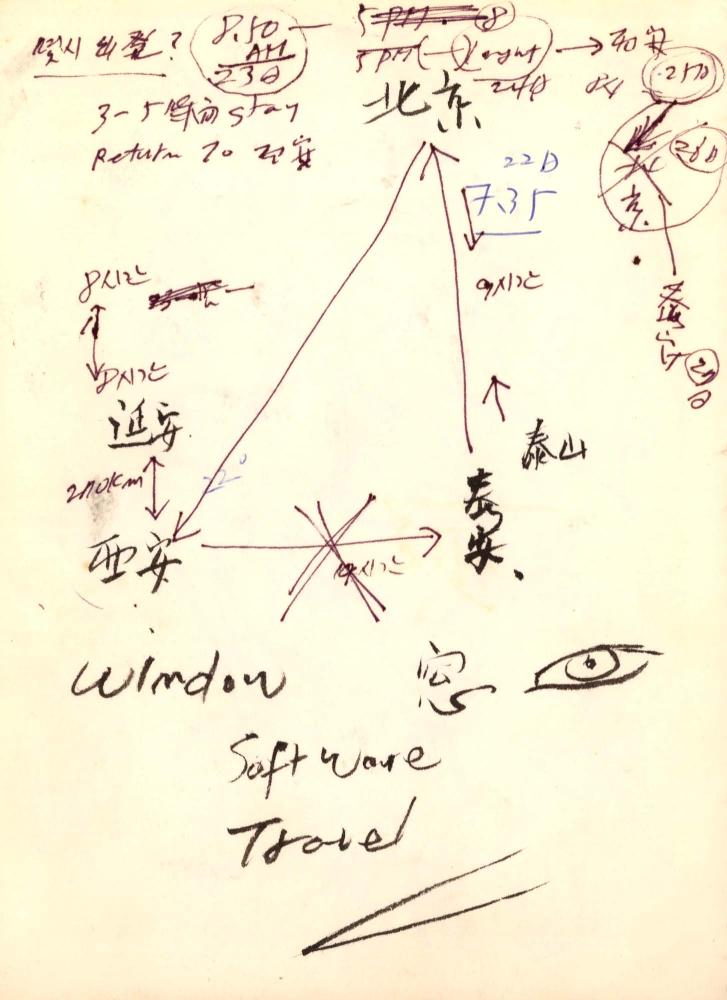 몇시 出발?
8.50
AM
23日
5 PM
8
5 PM
24日
西安
25日
3-5 stay
Return to 西安
北京
22日
7.35
26日
北
京
8시간
9시간
8시간
延安
270km
22°
泰山
泰
安
西安
시간
日
window
窓
Software
Travel